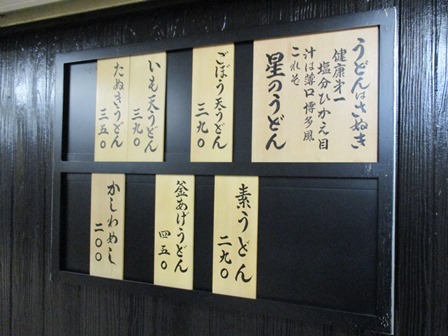 うどんはさぬき
健康第一
塩分ひかえ目
汁は薄口博多風
これぞ
星のうどん
ごぼう天うどん
三九〇
いも天うどん
三九〇
たぬきうどん
三五〇
素うどん
二九〇
釜あげうどん
四五〇
かしわめし
二〇〇